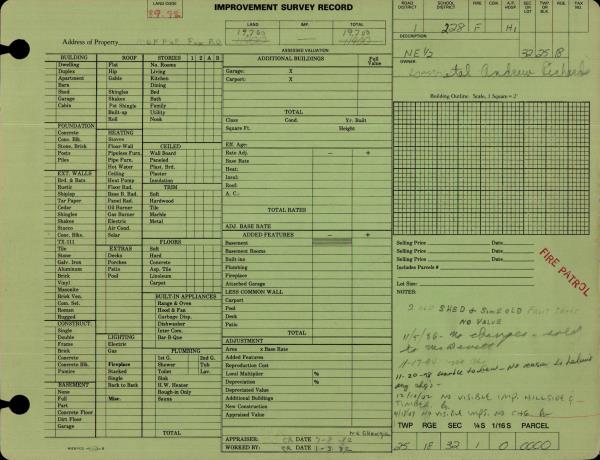 LAND CODE
IMPROVEMENT SURVEY RECORD
LAND IMP. TOTAL
19,700 19,700
Address of Property
ASSESSED VALUATION
ROAD DISTRICT SCHOOL DISTRICT FIRE CEM. A.P. HOSP. SEC OR LOT TWP. OR BLK. RGE. TAX NO.
1 228 F H1
DESCRIPTION
NE ½ 32 25 18
OWNER
Andrew
BUILDING ROOF STORIES 1 2 B
Dwelling Flat No. Rooms
Duplex Hip Living
Apartment Gable Kitchen
Barn Dining
Shed Shingles Bed
Garage Shakes Bath
Cabin Pat Shingle Family
Built-up Utility
Roll Nook
FOUNDATION
Concrete HEATING
Conc. Blk. Stoves
Stone, Brick Floor-Wall CEILED
Posts Pipeless Furn. Wall Board
Piles Pipe Furn. Paneled
Hot Water Plast. Brd.
EXT. WALLS Ceiling Plaster
Brd. & Bats Heat Pump Insulation
Rustic Floor Rad. TRIM
Shiplap Base B. Rad. Soft
Tar Paper Panel Rad. Hardwood
Cedar Oil Burner Tile
Shingles Gas Burner Marble
Shakes Electric Metal
Stucco Air Cond.
Conc. Blks. Solar FLOORS
TX-111
Tile EXTRAS Soft
Stone Decks Hard
Galv. Iron Porches Concrete
Aluminum Patio Asp. Tile
Brick Pool Linoleum
Vinyl Carpet
Masonite
Brick Ven. BUILT-IN APPLIANCES
Com. Sel. Range & Oven
Roman Hood & Fan
Rugged Garbage Disp.
CONSTRUCT. Dishwasher
Single Inter Com.
Double LIGHTING Bar-B-Que
Frame Electric
Brick Gas PLUMBING
Concrete 1st G. 2nd G.
Concrete Blk. Fireplace Shower Tub
Pumice Stacked Toilet Lav.
Single Sink
BASEMENT Back to Back H.W. Heater
None Rough-in Only
Full Misc. Sauna
Part
Concrete Floor
Dirt Floor
Garage TOTAL
ADDITIONAL BUILDINGS Full Value
Garage: X
Carport: X
TOTAL
Class Cond. Yr. Built
Square Ft. Height
Eff. Age:
Rate Adj. — +
Base Rate
Heat:
Insul:
Roof:
A. C.:
TOTAL RATES
ADJ. BASE RATE
ADDED FEATURES — +
Basement
Basement Rooms
Built ins
Plumbing
Fireplace
Attached Garage
LESS COMMON WALL
Carport
Pool
Deck
Patio
TOTAL
ADJUSTMENT
Area x Base Rate
Added Features
Reproduction Cost
Local Multiplier %
Depreciation %
Depreciated Value
Additional Buildings
New Construction
Appraised Value
APPRAISER: CR DATE
WORKED BY: CR DATE
Building Outline Scale, 1 Square = 2'
Selling Price Date
Selling Price Date
Selling Price Date
Includes Parcels #
Lot Size:
FIRE PATROL
NOTES:
SHED &
NO VALUE
11/5/86 - No changes - sold
to
12/10/02 NO VISIBLE IMP. HILLSIDE &
TIMBER
NO VISIBLE IMPS. NO CHG
TWP RGE SEC ¼S 1/16 S PARCEL
25 18 32 1 0 0000